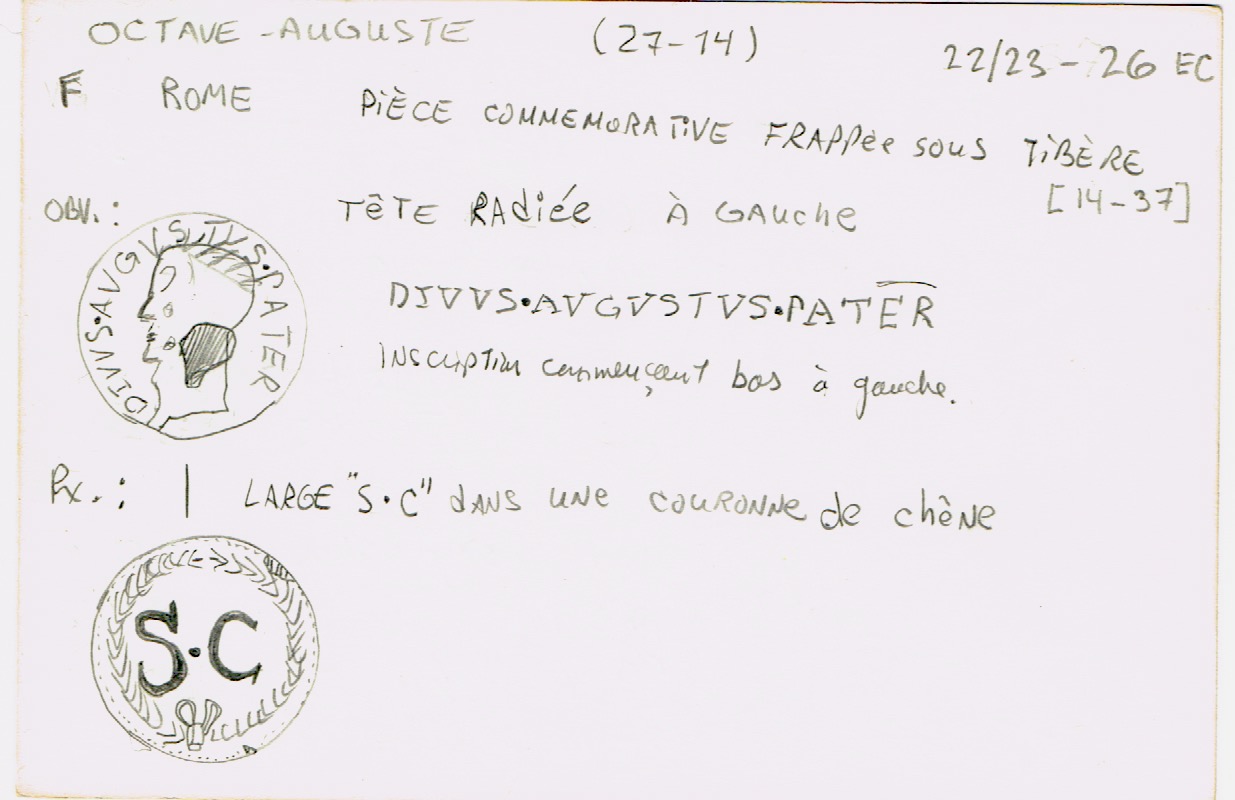 OCTAVE - AUGUSTE (27-14) 22/23 - 26 EC
F ROME PIÈCE COMMEMORATIVE FRAPPée sous TIBÈRE
[14-37]
OBV. : TêTE RAdiée À GAUche
DIVVS•AVGVSTVS•PATER
DIVVS•AVGVSTVS•PATER
inscription commençant bas à gauche.
Rx. : | LARGE "S•C" dANS UNE COURONNe de chêNe
S•C